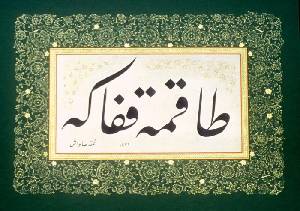 طاقمه قفاكه